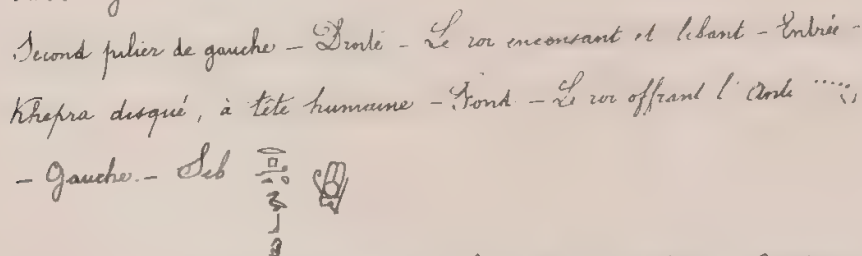 Second pilier de gauche – Droite – Le roi encensant et libant – Entrée –
Khepra disqué, à tête humaine – Fond – Le roi offrant l'
– Gauche. – Seb